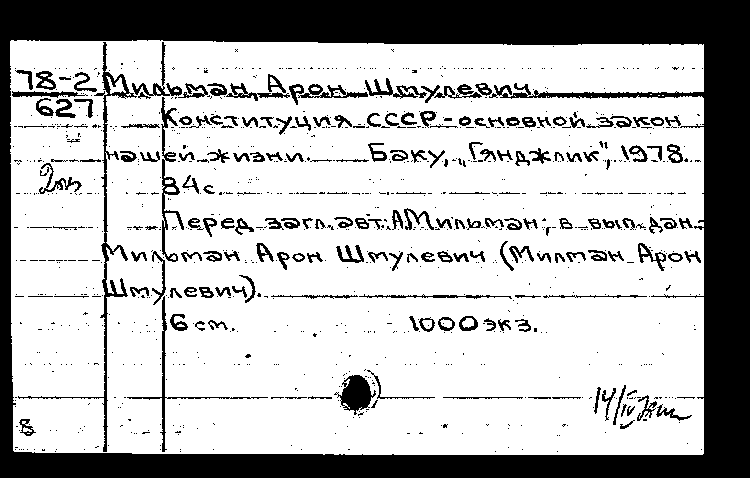 78-2 Мильман, Арон Шмулевич.
627 Конституция СССР - основной закон
нашей жизни. Баку, „Гянджлик", 1978.
2яз 84 с.
Перед загл. авт: А.Мильман; в вып. дан.-
Мильман Арон Шмулевич (Милман Арон
Шмулевич).
16 см. 1000 экз.
14/IV
8